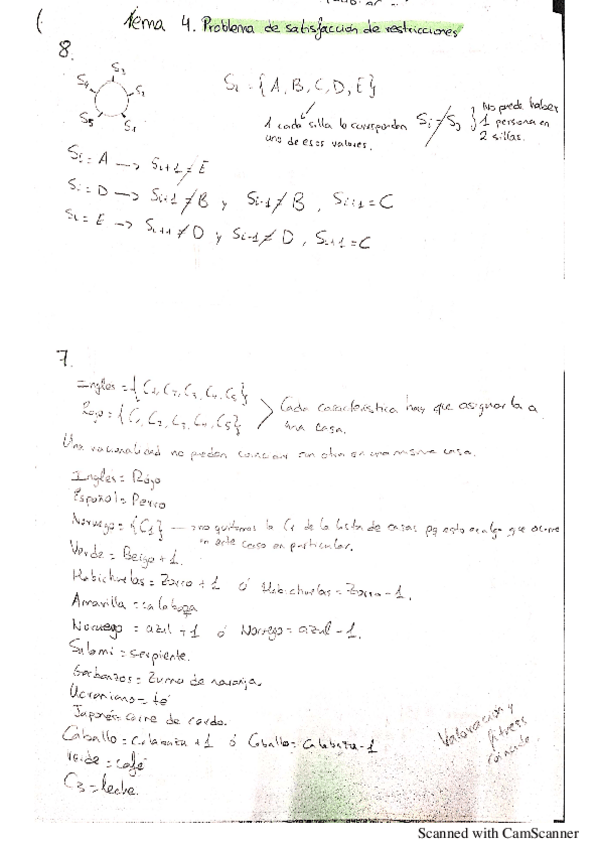 Tema 4. Problema de satisfacción de restricciones
8.
S3
S4
S2
S5
S1
Si = {A, B, C, D, E}
A cada silla le corresponden
uno de esos valores.
Si ≠ Sj } No puede haber
1 persona en
2 sillas.
Si = A → Si+1 ≠ E
Si = D → Si+1 ≠ B y Si-1 ≠ B, Si+1 = C
Si = E → Si+1 ≠ D y Si-1 ≠ D, Si+1 = C
7.
Ingles = {C1, C2, C3, C4, C5}
Rojo = {C1, C2, C3, C4, C5}
Cada característica hay que asignarla a
una casa.
Una nacionalidad no pueden coincidir con otra en una misma casa.
Ingles = Rojo
Español = Perro
Noruego = {C1} → no quitamos la C1 de la lista de casas pq esto es algo que ocurre
en este caso en particular.
Verde = Beige + 1.
Habichuelas = Zorro + 1 ó Habichuelas = Zorro - 1.
Amarilla = calabaza
Noruego = azul + 1 ó Noruego = azul - 1.
Salami = serpiente.
Garbanzos = Zumo de naranja.
Ucraniano = té
Japonés = carne de cerdo.
Caballo = calabaza + 1 ó Caballo = Calabaza - 1
Verde = café
C3 = leche.
Valoración y
fitness
coincide
Scanned with CamScanner